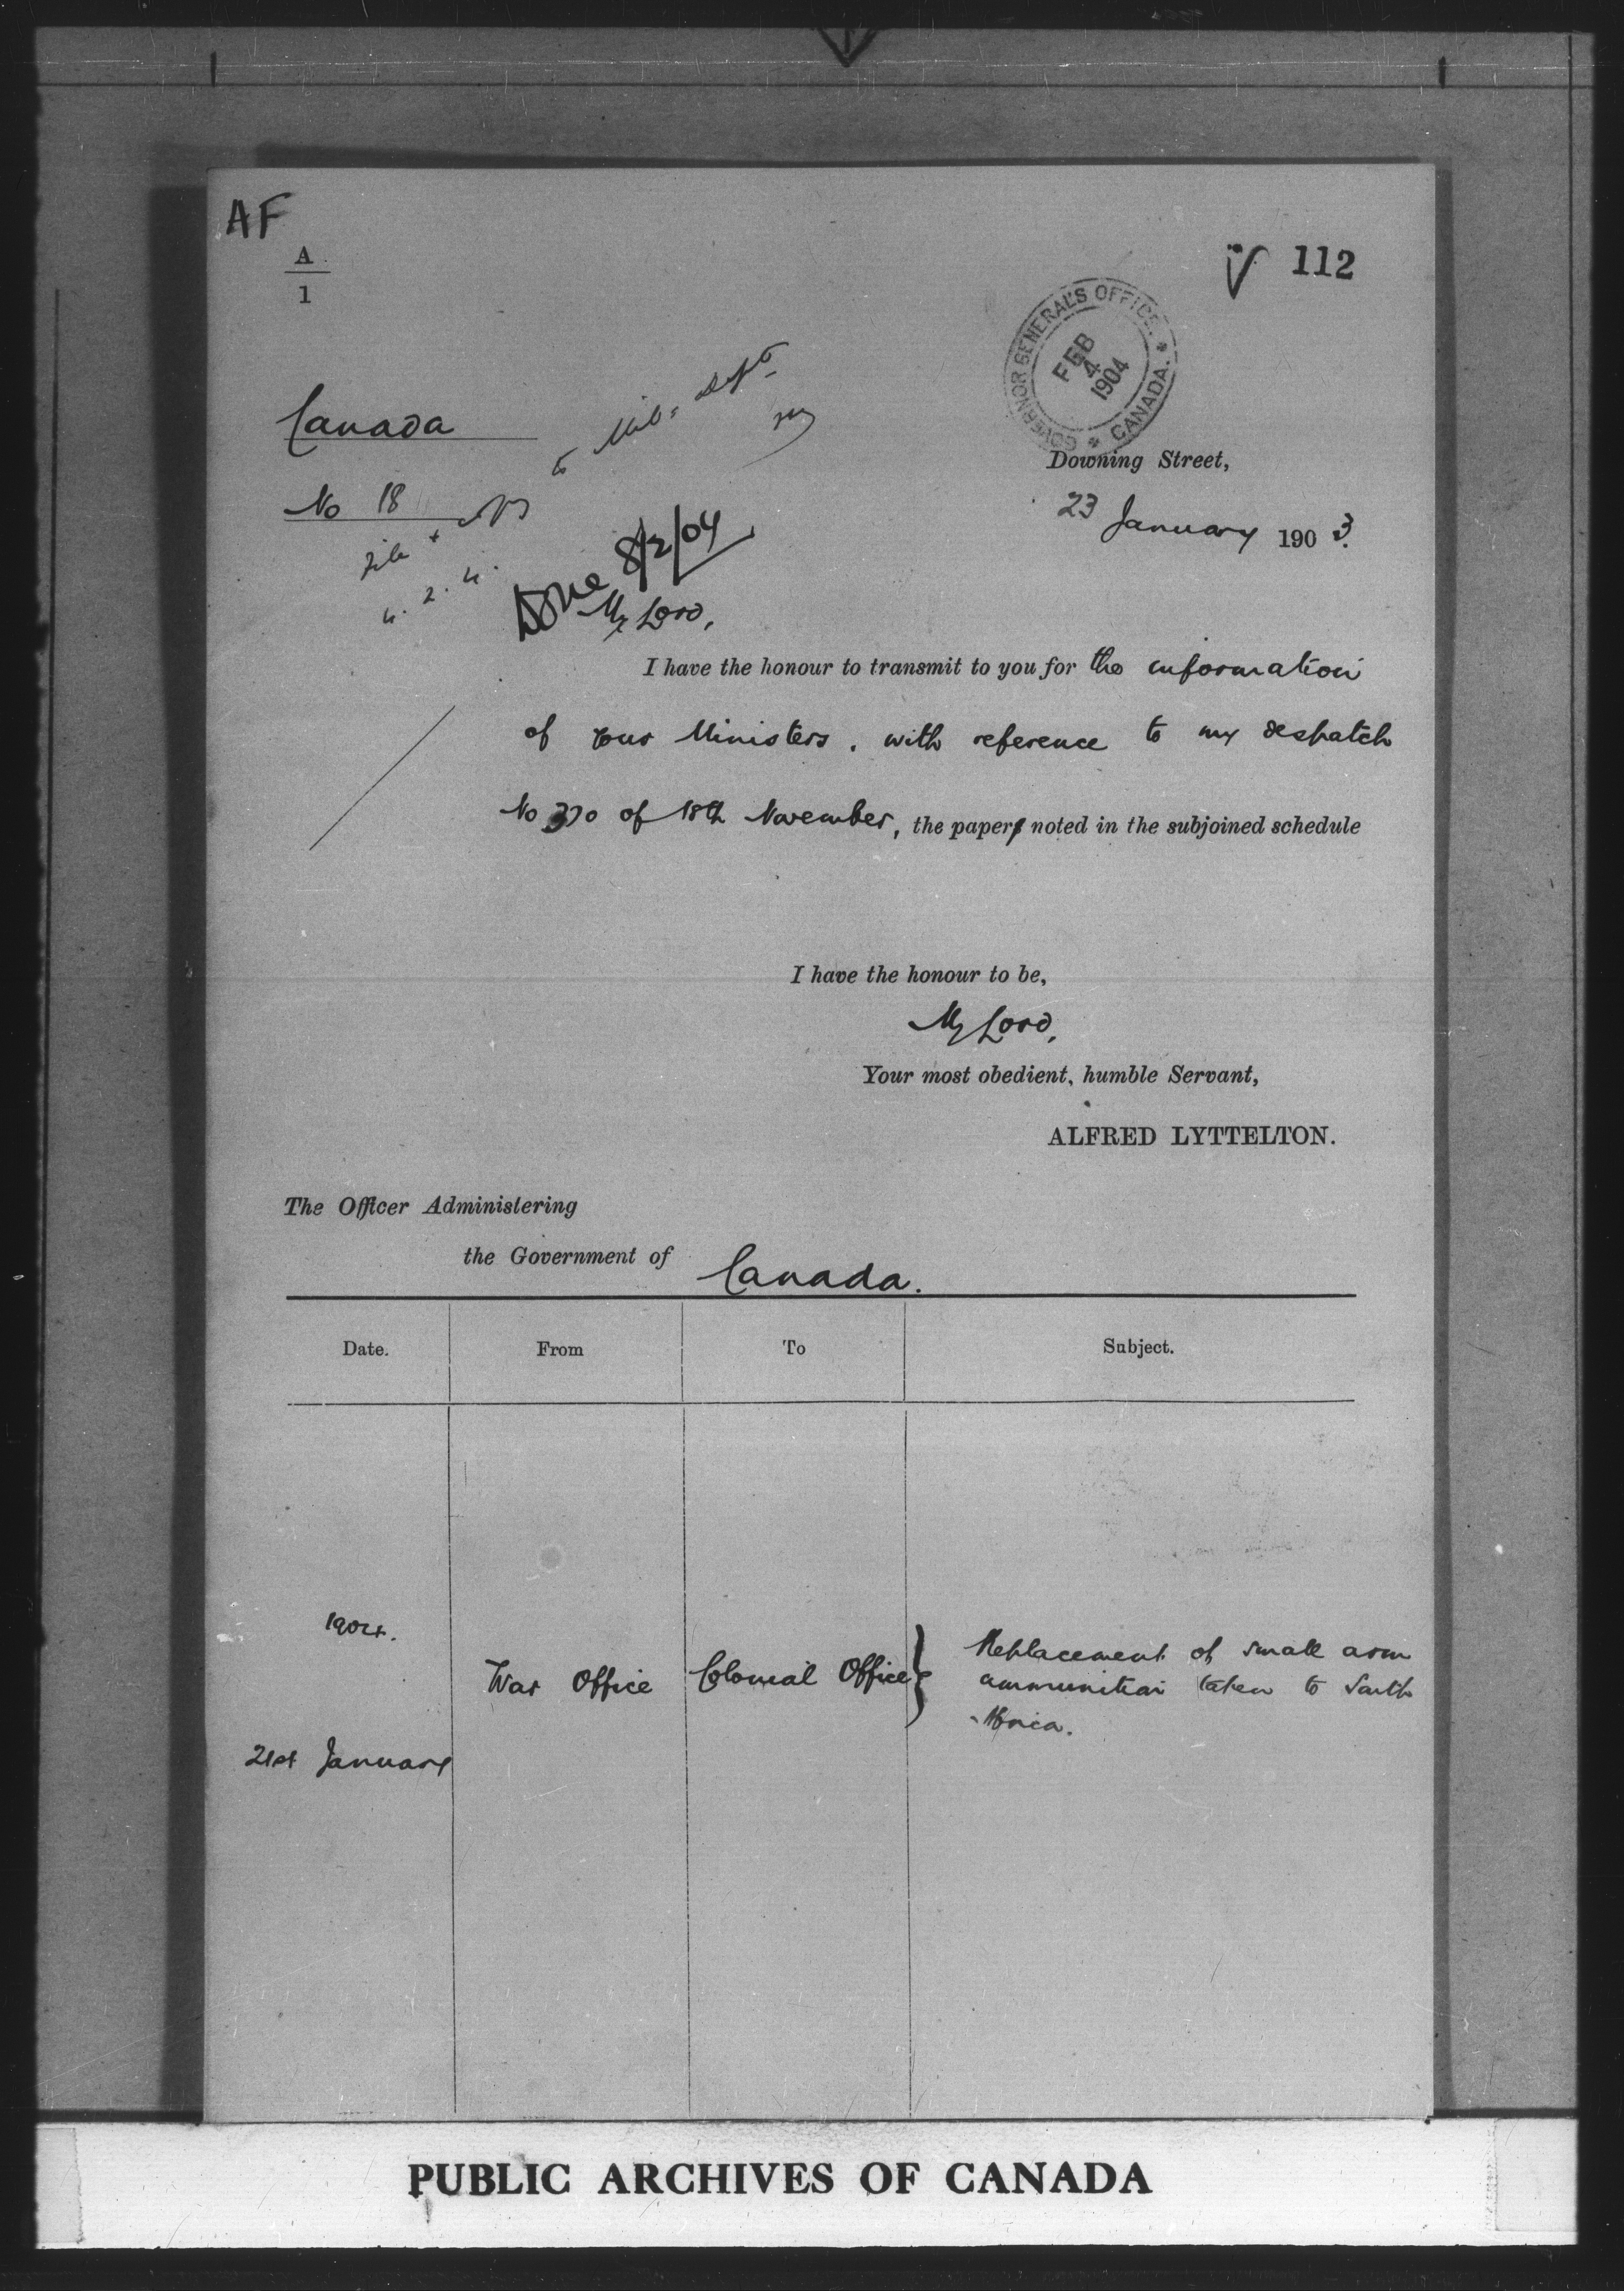 AF
A
1
112
GOVERNOR GENERAL'S OFFICE. * CANADA. *
FEB
4
1904
Canada
to Mil. Dept.
Downing Street,
No 18
23 January 1903.
File +
4. 2. 4.
Done 8/2/04
My Lord,
I have the honour to transmit to you for the information
of your Ministers, with reference to my despatch
No 370 of 18th November, the paper noted in the subjoined schedule
I have the honour to be,
My Lord,
Your most obedient, humble Servant,
ALFRED LYTTELTON.
The Officer Administering
the Government of Canada.
Date. From To Subject.
1904.
21st January War Office Colonial Office } Replacement of small arm
ammunition taken to South
Africa.
PUBLIC ARCHIVES OF CANADA